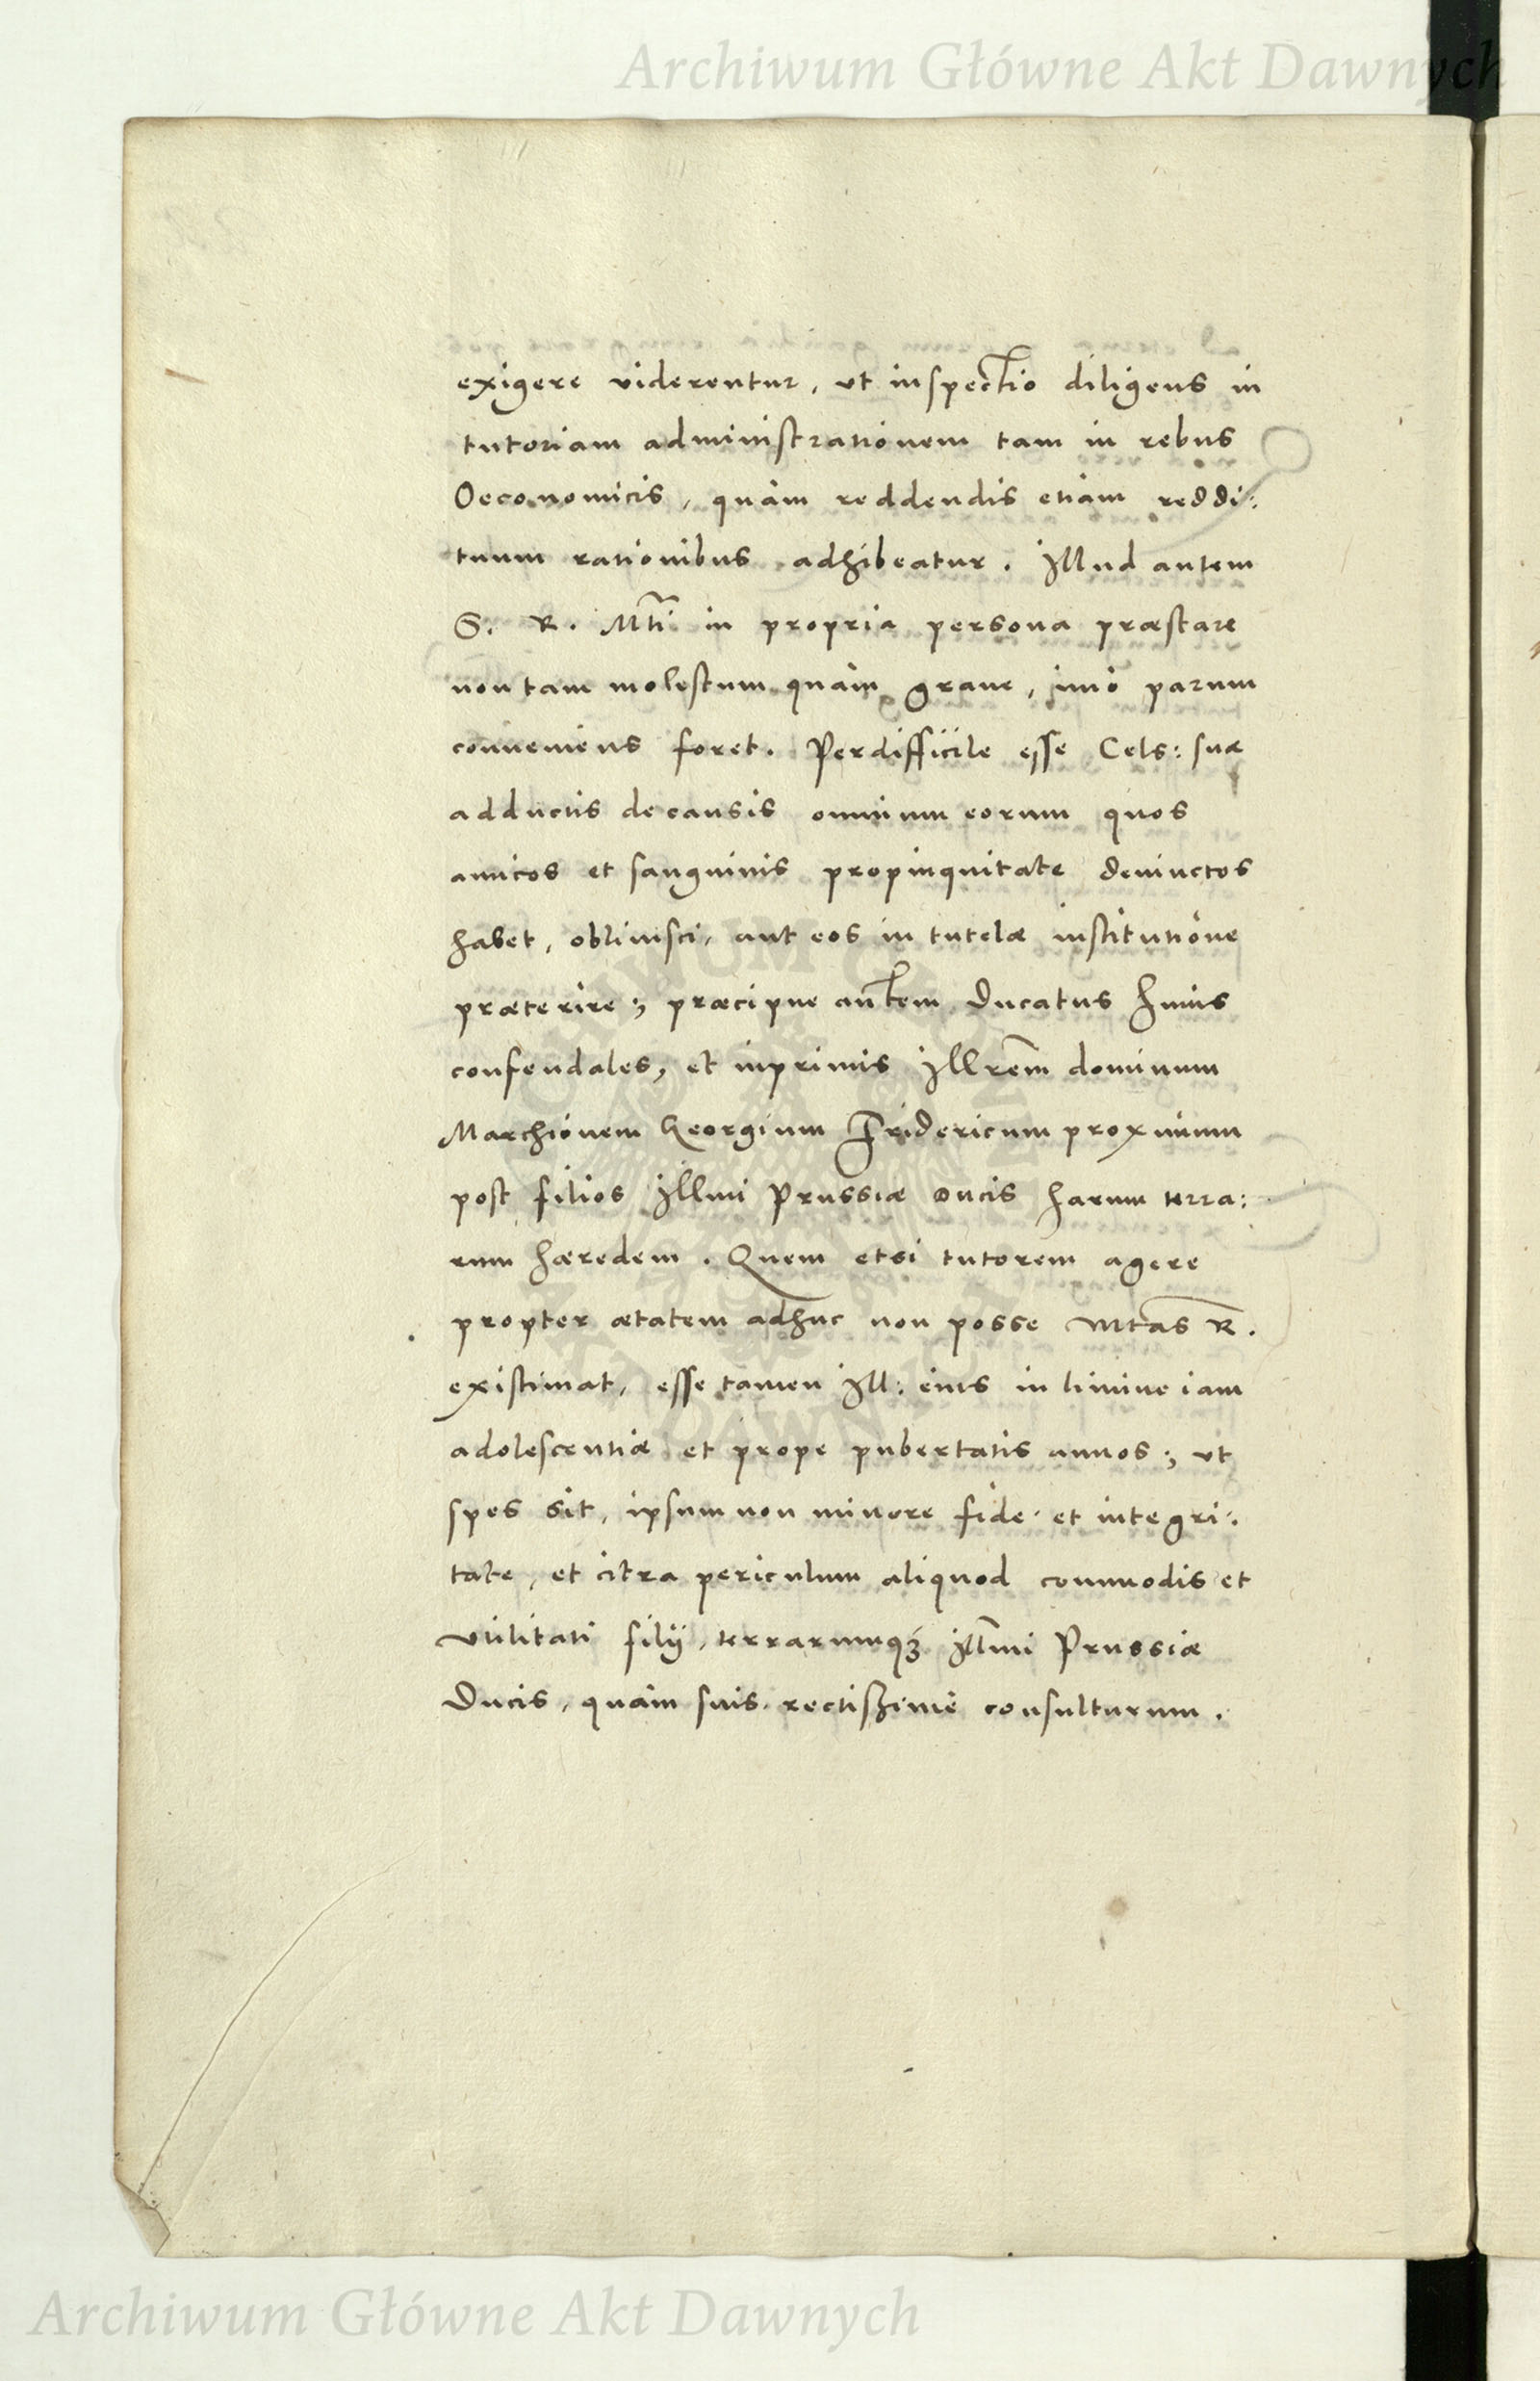 Archiwum Główne Akt Dawnych
exigere viderentur, vt inspectio diligens in
tutoriam administrationem tam in rebus
Oeconomicis, quàm reddendis etiam reddi:
tuum rationibus adhibeatur. Illud autem
S. R. Mti in propria persona præstare
non tam molestum quàm graue, imò parum
conueniens foret. Perdifficile esse Cels: suæ
adductis de causis omnium eorum quos
amicos et sanguinis propinquitate deuinctos
habet, obliuisci, aut eos in tutelæ institutione
præterire; præcipue autem Ducatus huius
confeudales, et inprimis Illrem dominum
Marchionem Georgium Fridericum proximum
post filios Illmi Prussiæ Ducis harum terra:
rum hæredem. Quem etsi tutorem agere
propter ætatem adhuc non posse Mtas R.
existimat, esse tamen Ill: eius in limine iam
adolescentiæ et prope pubertatis annos; vt
spes sit, ipsum non minore fide et integri:
tate, et citra periculum aliquod commodis et
vtilitati filij, terrarumq3 Illmi Prussiæ
Ducis, quàm suis rectissimè consulturum.
Archiwum Główne Akt Dawnych